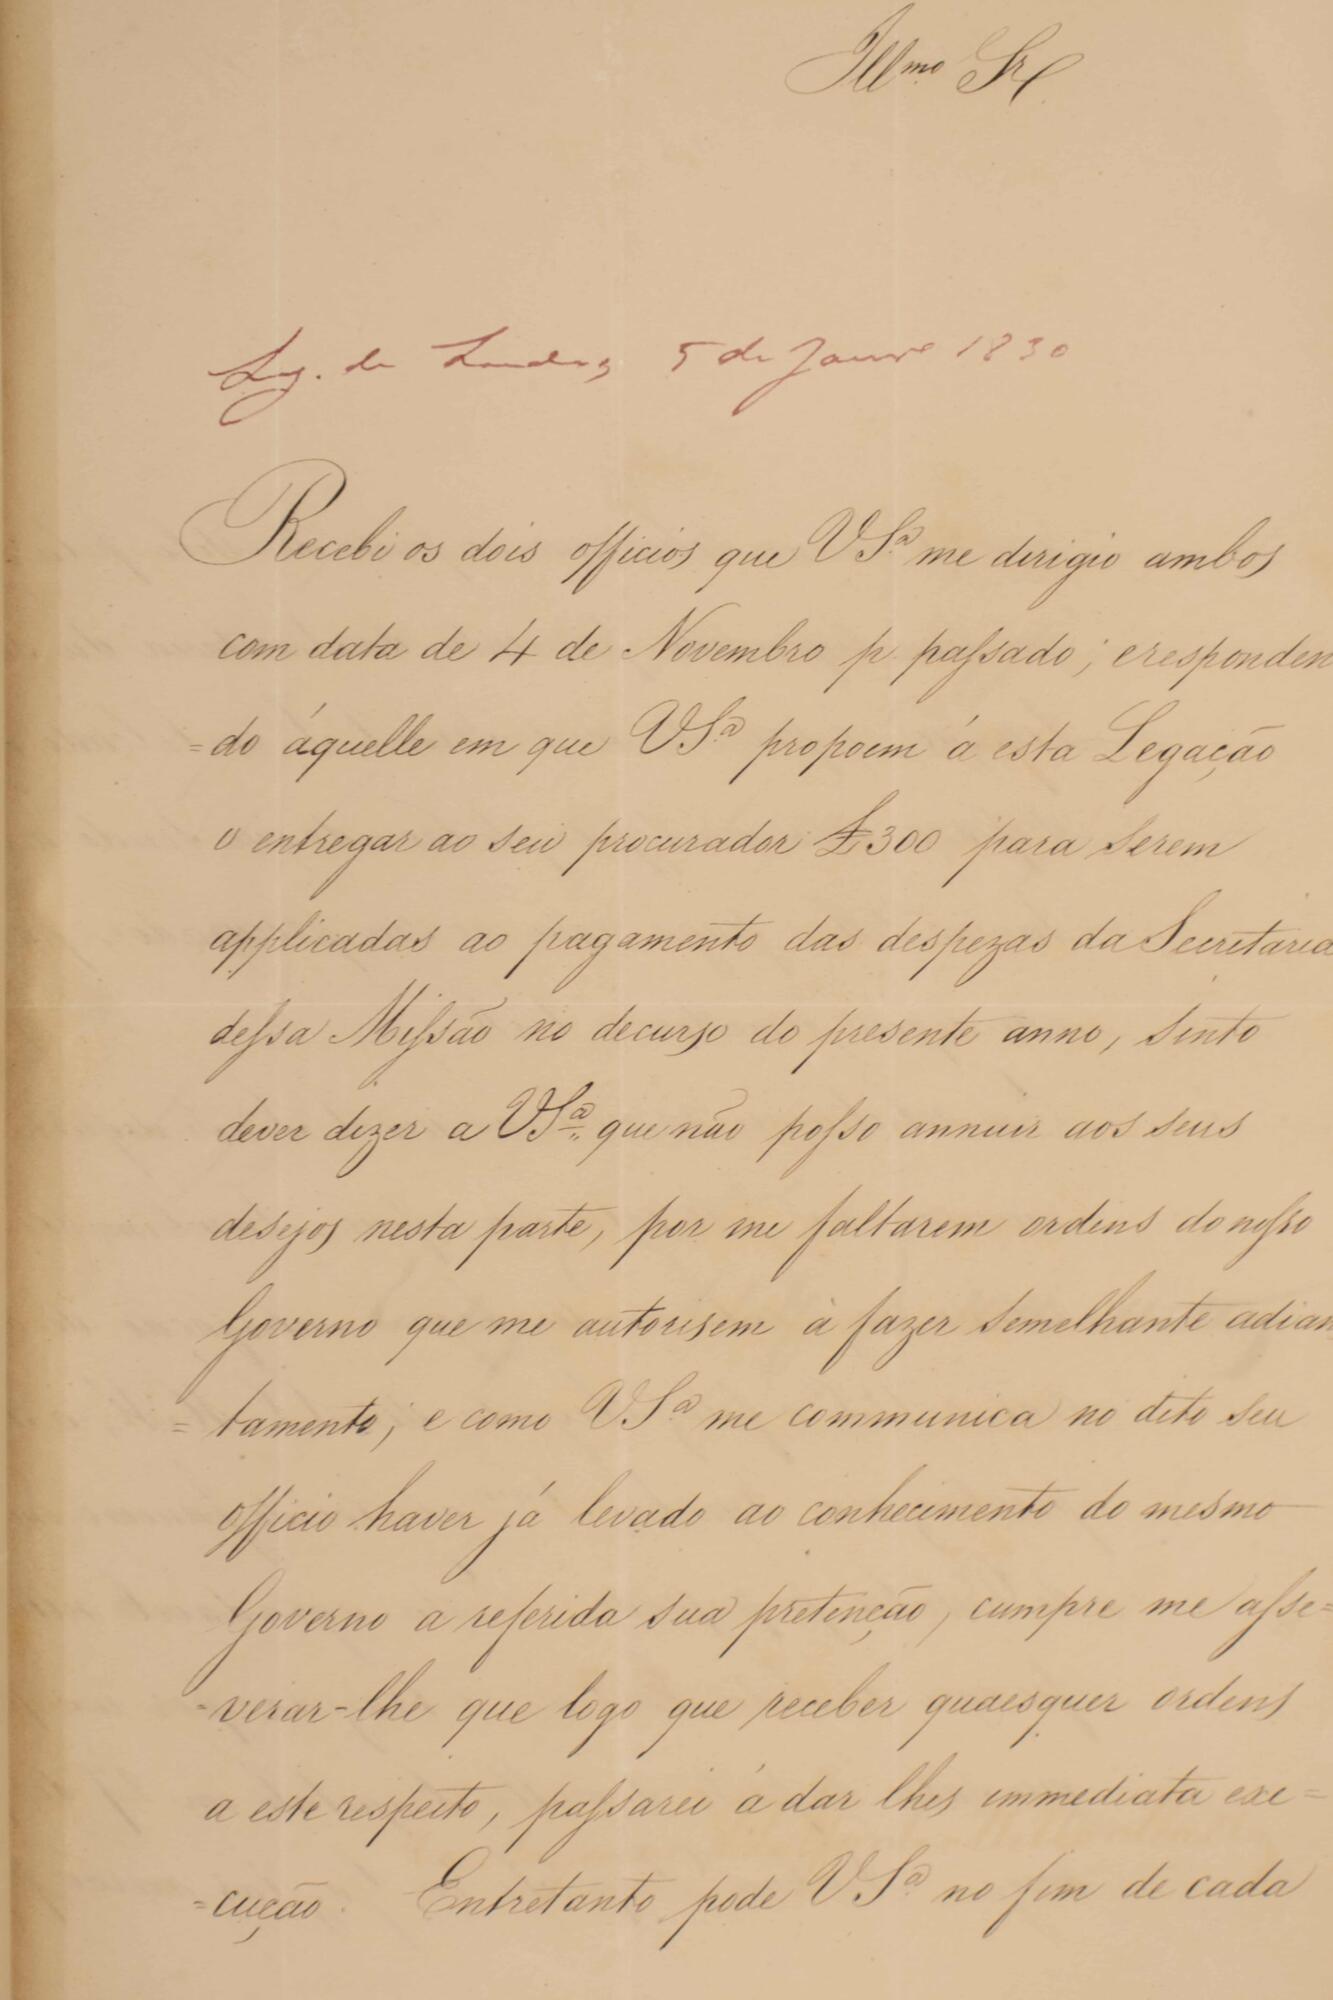 Illmo Sr
Leg. de Londres 5 de Janro 1830
Recebi os dois officios que VSª me dirigio ambos
com data de 4 de Novembro p. passado; e responden
=do áquelle em que VSª propoem á esta Legação
o entregar ao seu procurador £300 para serem
applicadas ao pagamento das despezas da Secretaria
dessa Missão no decurso do presente anno, sinto
dever dizer a VSª que não posso annuir aos seus
desejos nesta parte, por me faltarem ordens do nosso
Governo que me autorisem à fazer semelhante adian
=tamento; e como VSª me communica no dito seu
officio haver já levado ao conhecimento do mesmo
Governo a referida sua pretenção, cumpre me asse=
-verar-lhe que logo que receber quaesquer ordens
a este respeito, passarei á dar lhes immediata exe=
=cução. Entretanto pode VSª no fim de cada